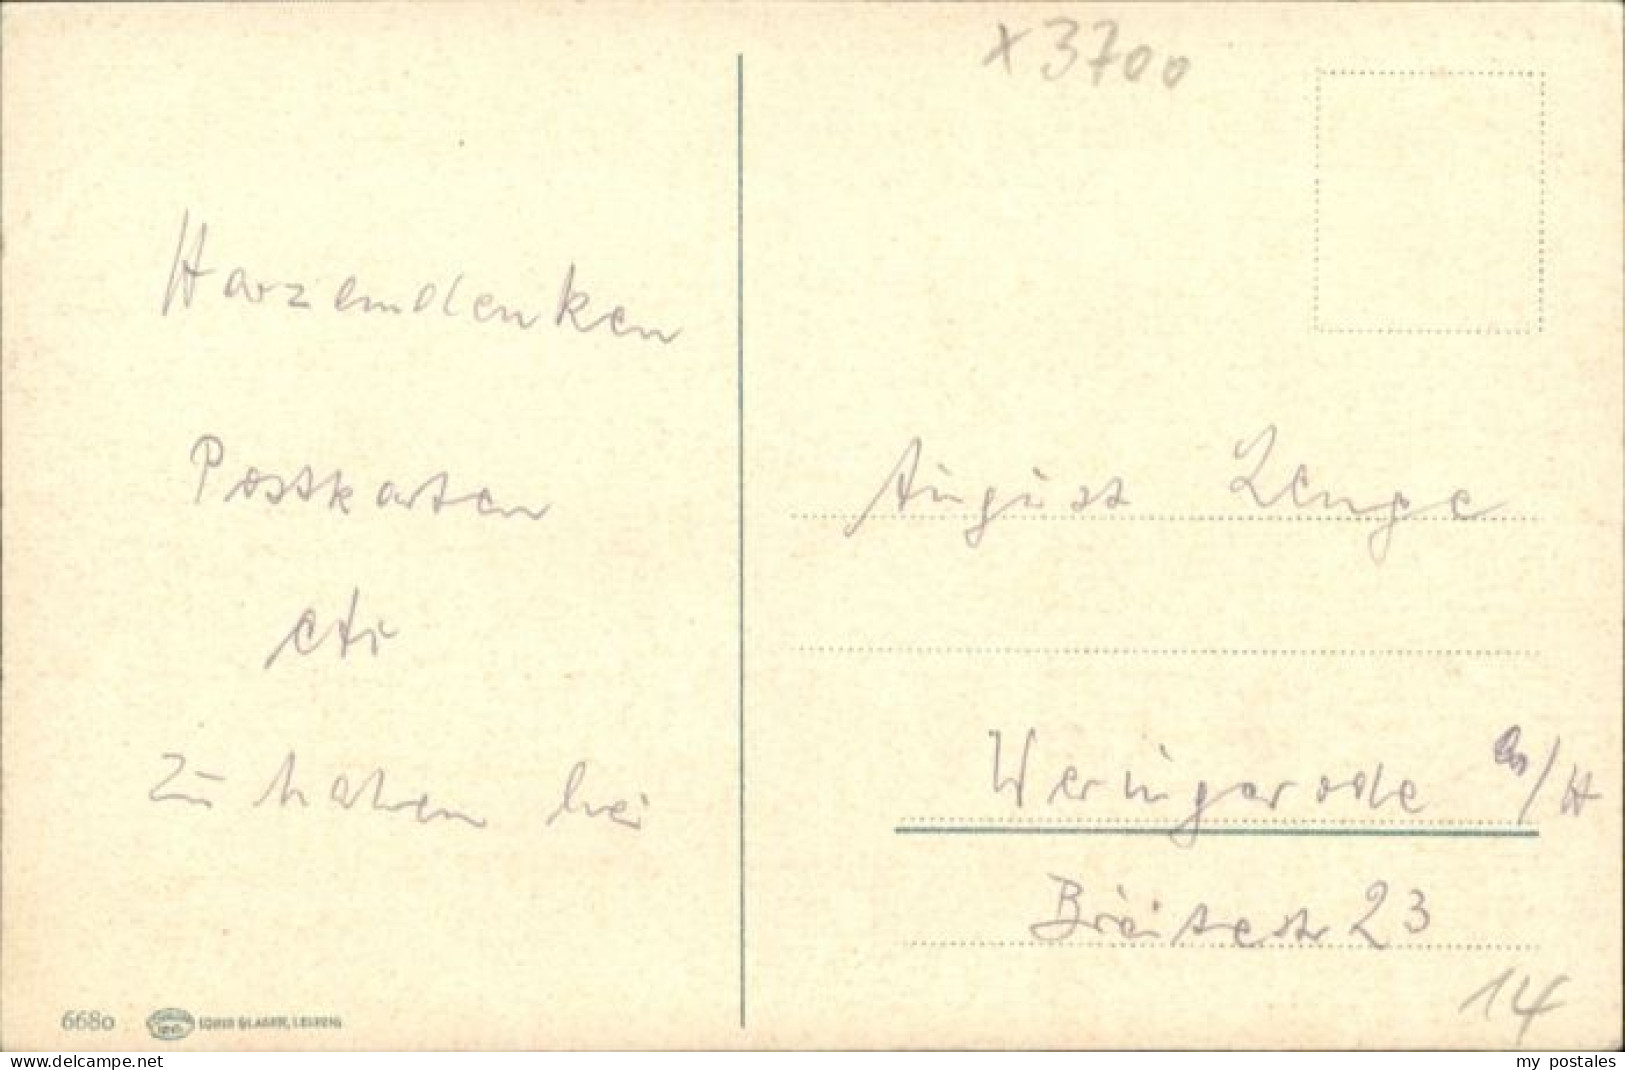 x 3700
Harzandenken
Postkarten
etc
Zu haben bei
August Lenge
Weringerode a/H
Breitestr 23
14
6680 LOUIS GLASER, LEIPZIG
www.delcampe.net
my_postales